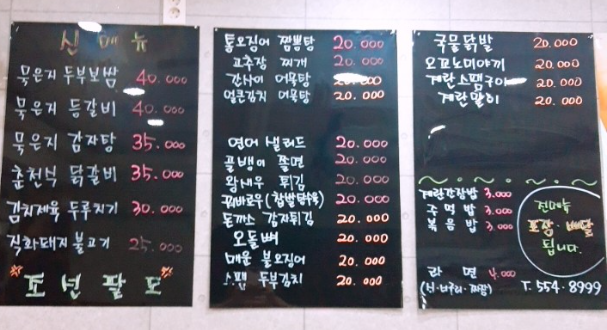 신 메 뉴
묵은지 두부보쌈 40.000
묵은지 등갈비 40.000
묵은지 감자탕 35.000
춘천식 닭갈비 35.000
김치제육 두루치기 30.000
직화돼지 불고기 25.000
토 년 팔 도
통오징어 짬뽕탕 20.000
고추장 찌개 20.000
간사이 어묵탕 20.000
얼큰김치 어묵탕 20.000
연어 샐러드 20.000
골뱅이 쫄면 20.000
왕새우 튀김 20.000
꿔바로우(찹쌀탕수육) 20.000
돈까스 감자튀김 20.000
오돌뼈 20.000
매운 불오징어 20.000
스팸 두부김치 20.000
국물닭발 20.000
오꼬노미야끼 20.000
계란스팸구이 20.000
계란말이 20.000
계란간장밥 3.000
주먹밥 3.000
볶음밥 3.000
라 면 4.000
(신·너구리·짜팜)
전메뉴
포장·배달
됩니다.
T. 554-8999